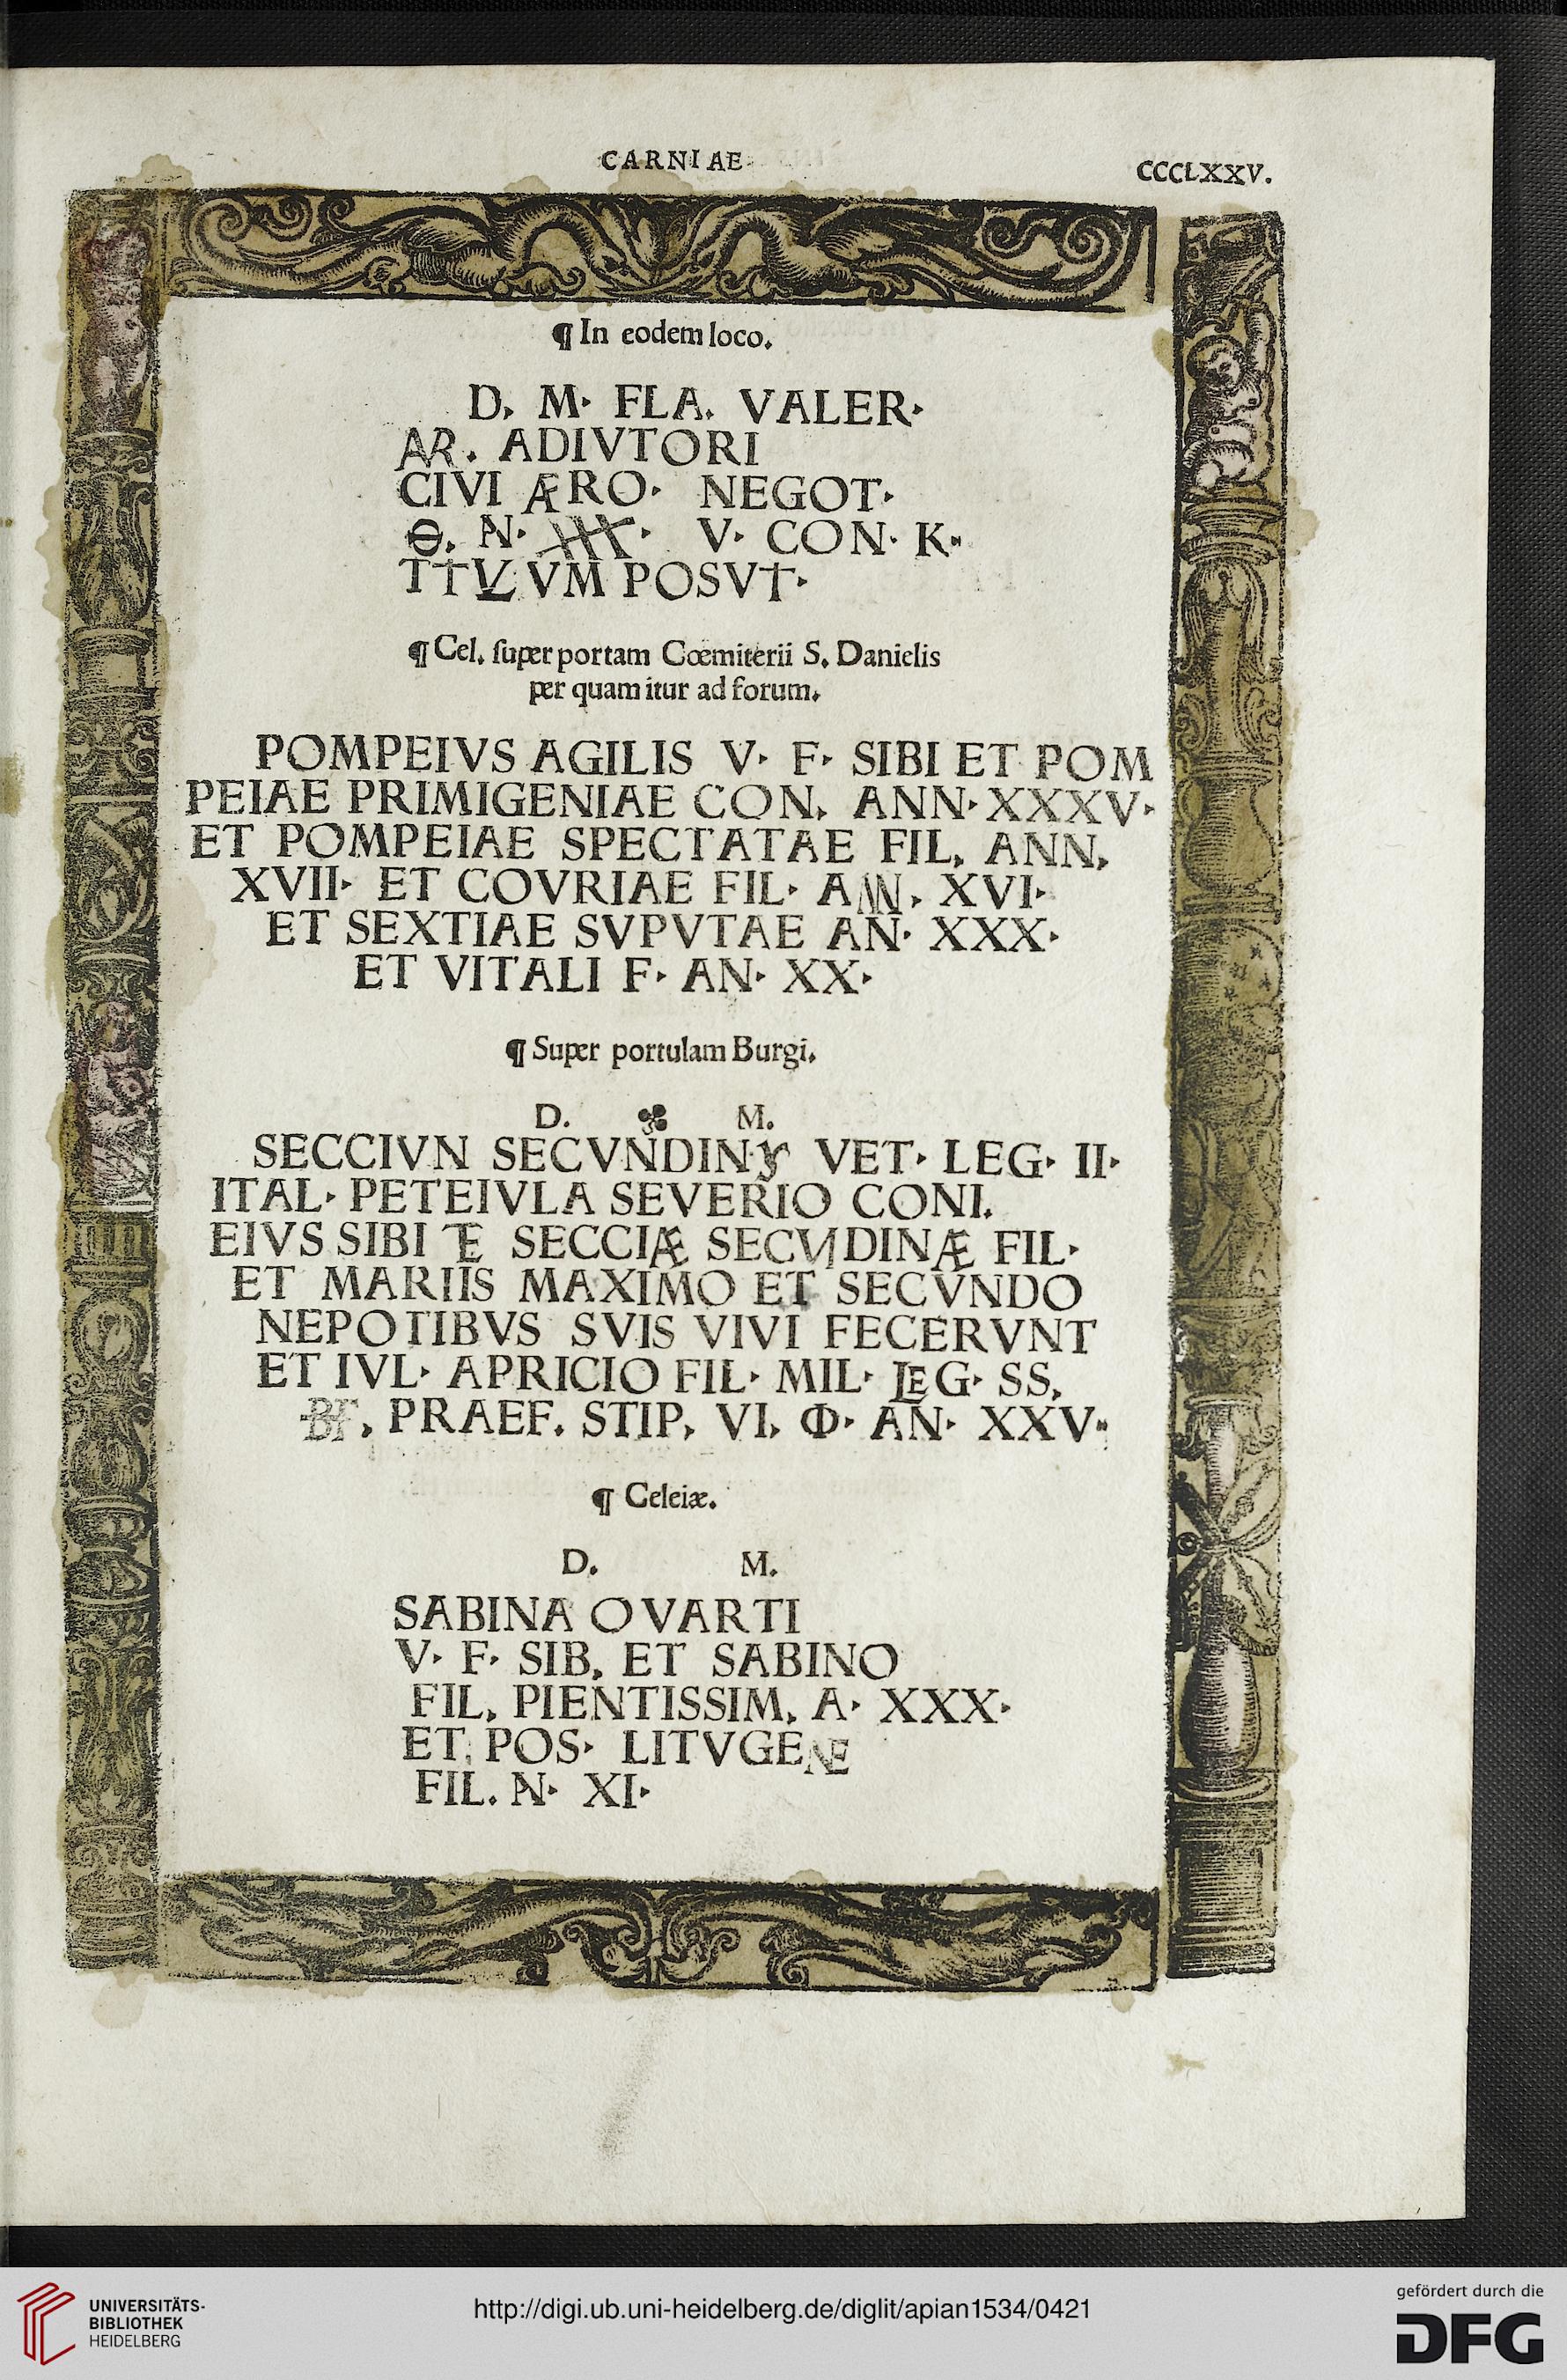 CARNIAE
CCCLXXV.
¶ In eodem loco.
D. M. FLA. VALER.
AR. ADIVTORI
CIVI ÆRO. NEGOT.
N. V. CON. K.
POSVT.
¶ Cel. super portam Cœmiterii S. Danielis
per quam itur ad forum.
POMPEIVS AGILIS V. F. SIBI ET POM
PEIAE PRIMIGENIAE CON. ANN. XXXV.
ET POMPEIAE SPECTATAE FIL. ANN.
XVII. ET COVRIAE FIL. ANN. XVI.
ET SEXTIAE SVPVTAE AN. XXX.
ET VITALI F. AN. XX.
¶ Super portulam Burgi.
D. M.
SECCIVN SECVNDINVS VET. LEG. II.
ITAL. PETEIVLA SEVERIO CONI.
EIVS SIBI TE SECCIÆ SECVNDINÆ FIL.
ET MARIIS MAXIMO ET SECVNDO
NEPOTIBVS SVIS VIVI FECERVNT
ET IVL. APRICIO FIL. MIL. LEG. SS.
BF. PRAEF. STIP. VI. Φ. AN. XXV.
¶ Celeiæ.
D. M.
SABINA OVARTI
V. F. SIB. ET SABINO
FIL. PIENTISSIM. A. XXX.
ET. POS. LITVGENE
FIL. N. XI.
UNIVERSITÄTS-
BIBLIOTHEK
HEIDELBERG
http://digi.ub.uni-heidelberg.de/diglit/apian1534/0421
gefördert durch die
DFG